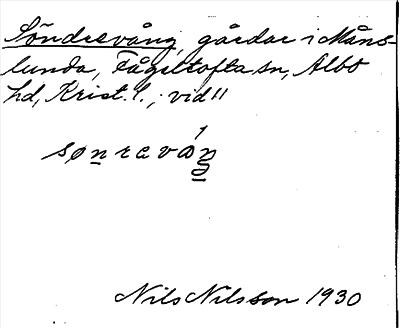 Söndresvång, gårdar i Måns-
lunda, Fågeltofta sn, Albo
hd, Krist. l., vid 11
Nils Nilsson 1930